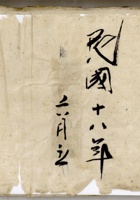 民國十八年
六月立